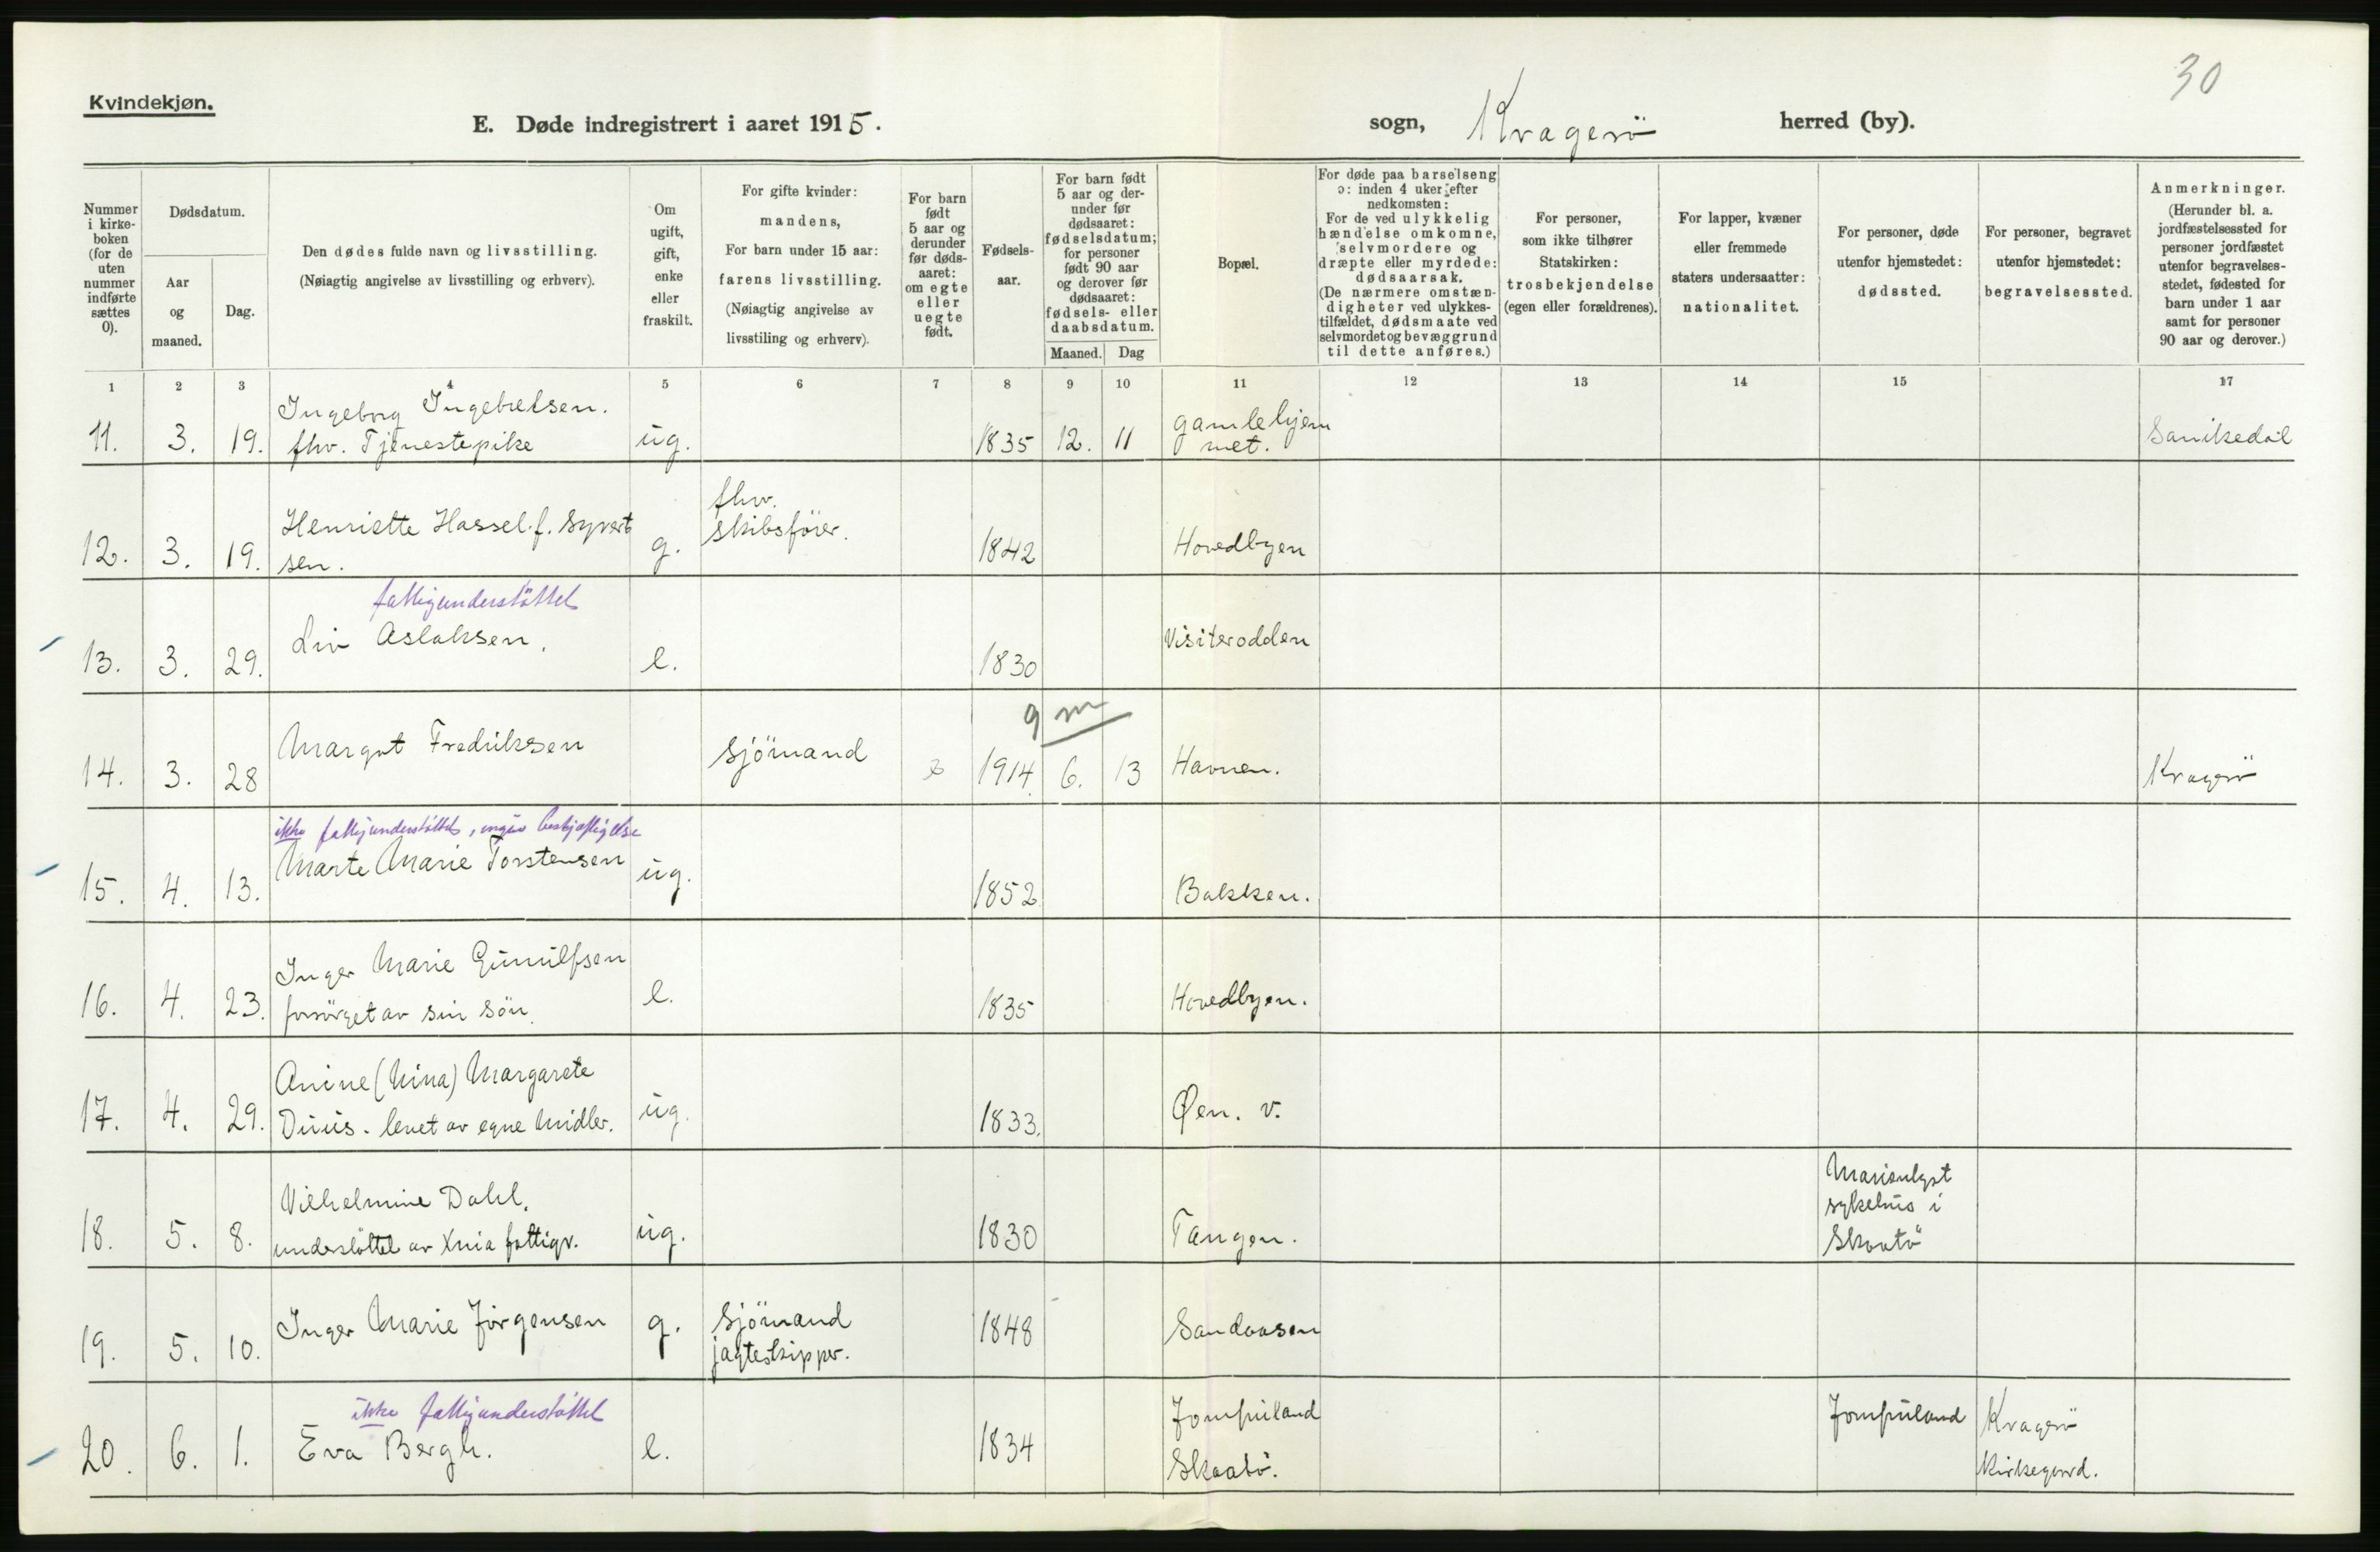 30
Kvindekjøn.
E. Døde indregistrert i aaret 1915.
sogn, Kragerö herred (by).
Nummer i kirke-boken (for de uten nummer indførte sættes 0).
Dødsdatum.
Aar og maaned.
Dag.
Den dødes fulde navn og livsstilling.
(Nøiagtig angivelse av livsstilling og erhverv).
Om ugift, gift, enke eller fraskilt.
For gifte kvinder: mandens,
For barn under 15 aar: farens livsstilling.
(Nøiagtig angivelse av livsstiling og erhverv).
For barn født 5 aar og derunder før døds-aaret: om egte eller uegte født.
Fødsels-aar.
For barn født 5 aar og der-under før dødsaaret: fødselsdatum; for personer født 90 aar og derover før dødsaaret: fødsels- eller daabsdatum.
Maaned. Dag
Bopæl.
For døde paa barselseng ɔ: inden 4 uker efter nedkomsten:
For de ved ulykkelig hændelse omkomne, selvmordere og dræpte eller myrdede: dødsaarsak.
(De nærmere omstæn-digheter ved ulykkes-tilfældet, dødsmaate ved selvmordet og bevæggrund til dette anføres.)
For personer, som ikke tilhører Statskirken: trosbekjendelse (egen eller forældrenes).
For lapper, kvæner eller fremmede staters undersaatter: nationalitet.
For personer, døde utenfor hjemstedet: dødssted.
For personer, begravet utenfor hjemstedet: begravelsessted.
Anmerkninger.
(Herunder bl. a. jordfæstelsessted for personer jordfæstet utenfor begravelses-stedet, fødested for barn under 1 aar samt for personer 90 aar og derover.)
1 2 3 4 5 6 7 8 9 10 11 12 13 14 15 17
Ingeborg Ingebretsen. gamlehjem
11. 3. 19. fhv. Tjenestepike ug. 1835 12. 11 met. Sanikedal
fhv.
Henriette Hassel f. Syvert skibsförer.
12. 3. 19. sen. g. 1842 Hovedbyen
fattigunderstöttet
Liv Aslaksen. Visiterodden
13. 3. 29. e. 1830
9 m
Margot Fredriksen Sjömand
14. 3. 28 e 1914. 6. 13 Havnen. Kragerö
ikke fattigunderstöttet, ingen beskjæftigelse
Marte Marie Torstensen
15. 4. 13. ug. 1852 Bakken.
Inger Marie Gunulfsen
16. 4. 23. forsörget av sin sön. e. 1835 Hovedbyen.
Anine (Nina) Margarete
17. 4. 29. levet av egne midler. ug. 1833. Øen. v.
Marienlyst
Vilhelmine Dahl. sykehus i
18. 5. 8. understöttet av Xnia fattigv. ug. 1830 Tangen. Skaatö
Inger Marie Jörgensen g. Sjömand 1848 Sandaasen
19. 5. 10. jagteskipper.
ikke fattigunderstöttet
Jomfruland Jomfruland Kragerö
20. 6. 1. Eva Bergh. e. 1834 Skaatö. Kirkegaard.